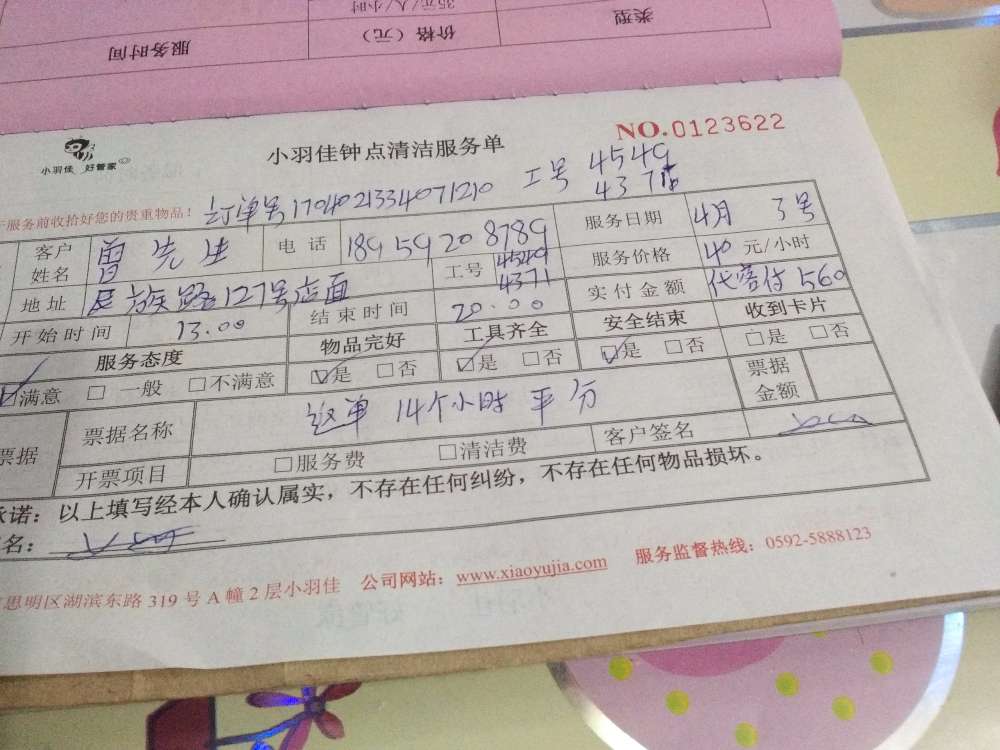 35元/人/小时
类型
价格（元）
服务时间
小羽佳 好管家
小羽佳钟点清洁服务单
NO.0123622
服务前收拾好您的贵重物品！
订单号1704021334071210 工号 4549
4371
客户姓名 曾先生 电话 18959208789 服务日期 4月 3号
地址 民族路127号店面 工号 4549 4371 服务价格 40 元/小时
开始时间 13.00 结束时间 20.00 实付金额 代客付560
服务态度 物品完好 工具齐全 安全结束 收到卡片
☑满意 □一般 □不满意 ☑是 □否 ☑是 □否 ☑是 □否 □是 □否
票据 票据名称 返单 14个小时 平分 票据金额
开票项目 □服务费 □清洁费 客户签名
承诺：以上填写经本人确认属实，不存在任何纠纷，不存在任何物品损坏。
名：
思明区湖滨东路319号A幢2层小羽佳 公司网站：www.xiaoyujia.com 服务监督热线：0592-5888123